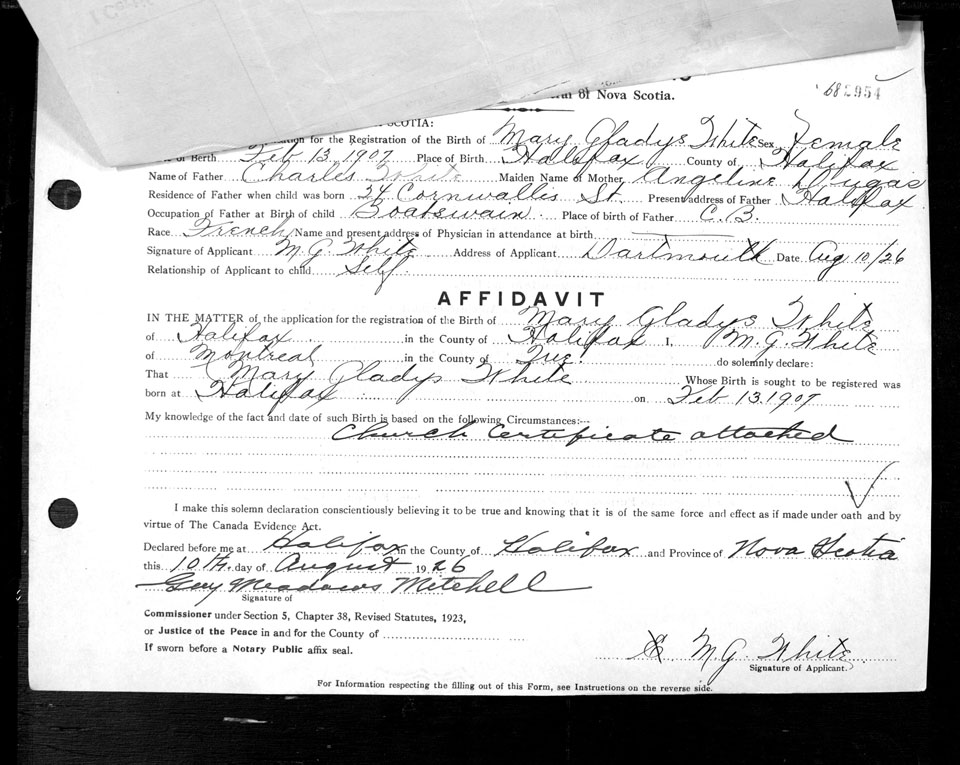 of Nova Scotia.
SCOTIA:
for the Registration of the Birth of Mary Gladys White Sex Female
of Berth Feb 13, 1907 Place of Birth Halifax County of Halifax
Name of Father Charles White Maiden Name of Mother Angeline Dugas
Residence of Father when child was born 24 Cornwallis St. Present address of Father Halifax.
Occupation of Father at Birth of child Boatswain. Place of birth of Father C.B.
Race French Name and present address of Physician in attendance at birth
Signature of Applicant M.G. White. Address of Applicant Dartmouth Date Aug 10/26
Relationship of Applicant to child Self
AFFIDAVIT
IN THE MATTER of the application for the registration of the Birth of Mary Gladys White
of Halifax in the County of Halifax I, M.G. White
of Montreal in the County of Que. do solemnly declare:
That Mary Gladys White Whose Birth is sought to be registered was
born at Halifax on Feb 13. 1907
My knowledge of the fact and date of such Birth is based on the following Circumstances:--
Church Certificate attached
I make this solemn declaration conscientiously believing it to be true and knowing that it is of the same force and effect as if made under oath and by
virtue of The Canada Evidence Act.
Declared before me at Halifax in the County of Halifax and Province of Nova Scotia
this 10th. day of August 1926
Meadows Mitchell
Signature of
Commissioner under Section 5, Chapter 38, Revised Statutes, 1923,
or Justice of the Peace in and for the County of
If sworn before a Notary Public affix seal.
M.G. White.
Signature of Applicant.
For Information respecting the filling out of this Form, see Instructions on the reverse side.